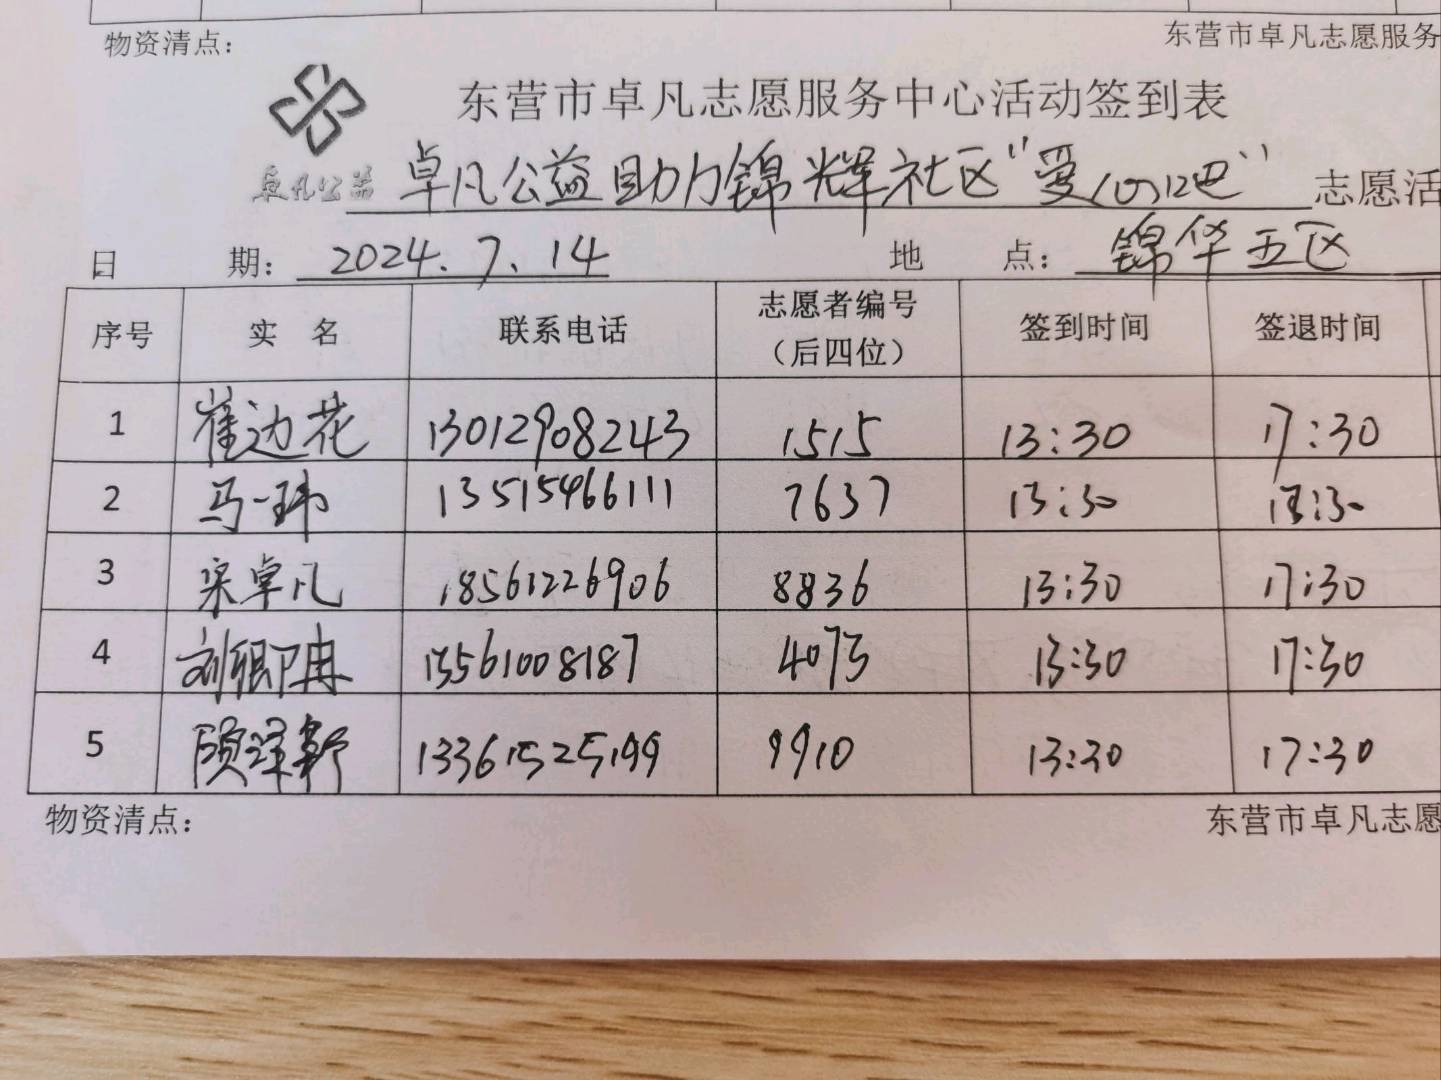 物资清点：
东营市卓凡志愿服务
东营市卓凡志愿服务中心活动签到表
卓凡公益
卓凡公益助力锦辉社区“爱心吧” 志愿活
日 期： 2024.7.14 地 点： 锦华五区
序号 实 名 联系电话 志愿者编号（后四位） 签到时间 签退时间
1 崔边花 13012908243 1515 13:30 17:30
2 马一玮 13515466111 7637 13:30 17:30
3 宋卓凡 18561226906 8836 13:30 17:30
4 13561008187 4073 13:30 17:30
5 13361525199 9910 13:30 17:30
物资清点：
东营市卓凡志愿